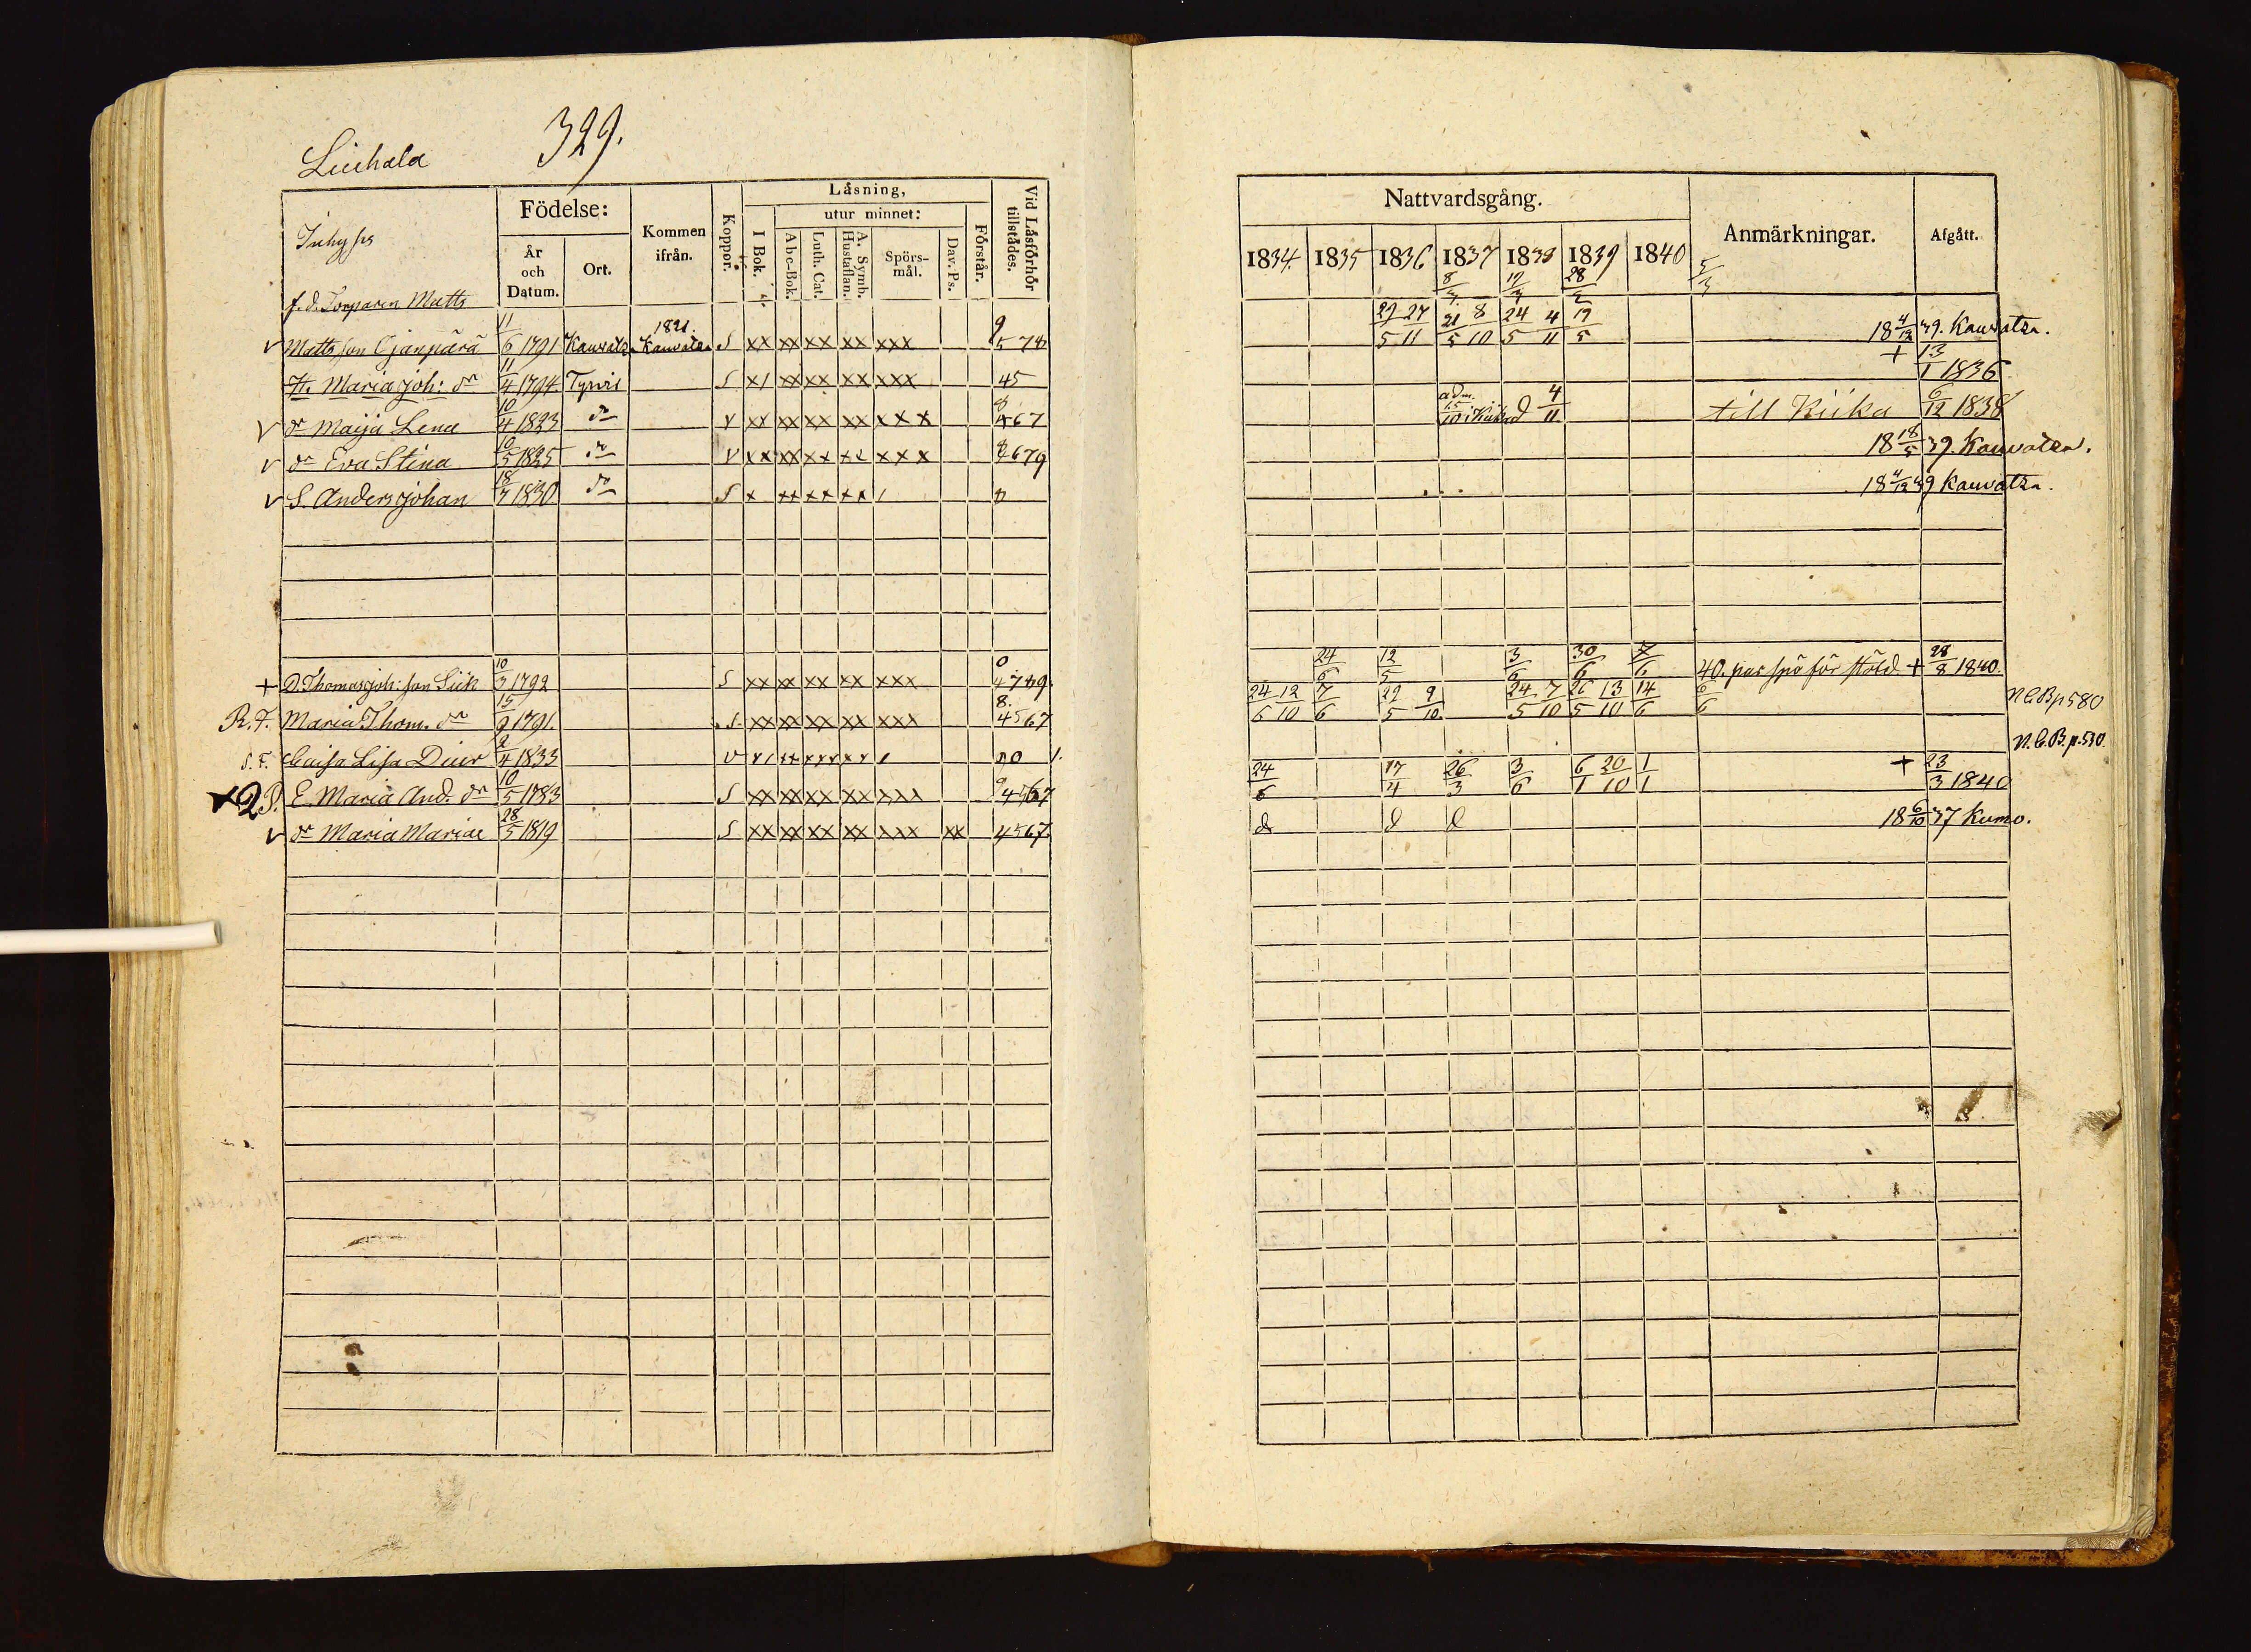 329.
Liuhala
Inhyses
Födelse:
År och Datum.
Ort.
Kommen ifrån.
Koppor.
Läsning,
I Bok.
utur minnet:
Abc-Bok.
Luth. Cat.
A. Symb. Hustaflan.
Spörs-mål.
Dav. Ps.
Förstår.
Vid Läsförhör tillstädes.
Nattvardsgång.
1834. 1835 1836 1837 1838 1839 1840
Anmärkningar.
Afgått.
f. d. Torparen Matts
v Matts son Ojanpärä 11/6 1791 Kauvatz. 1821. Kauvatsa S xx xx xx xx xxx 29/5 27/11 21/5 8/10 24/5 4/11 19/5 18 4/12 39. Kauvatsa.
H. Maria Joh: dr 11/4 1794 Tyrvis S x/ xx xx xx xxx 45 + 13/1 1836
v dr Maija Lena 10/4 1823 do v xx xx xx xx xxx 67 adm. 15/10 i Kiika d 4/11 till Kiika 6/12 1838
v dr Eva Stina 10/5 1825 do v xx xx xx xx xxx 679 18 18/5 39. Kauvatsa.
v S. Anders Johan 18/7 1830 do S x xx xx xx / 18 4/12 39 Kauvatsa.
+ D. Thomas Joh: son Siik 10/3 1792 S xx xx xx xx xxx 24/6 12/5 3/6 30/6 7/6 40. par spö för stöld + 28/8 1840.
R. F. Maria Thom. dr 15/9 1791. S. xx xx xx xx xxx 8. 4567 24/6 12/10 7/6 29/5 9/10 24/5 7/10 26/5 13/10 14/6 6/6 N.C.B. p 580
S. F. Caisa Lisa 2/4 1833 v N.C.B. p. 530.
E. Maria And. dr 10/5 1783 S xx xx xx xx xxx 4567 24/6 17/4 26/3 3/6 6/1 20/10 1/1 + 23/3 1840
v dr Maria Mariae 28/5 1819 S xx xx xx xx xxx xx 4567 d d d 18 6/10 37 Kumo.